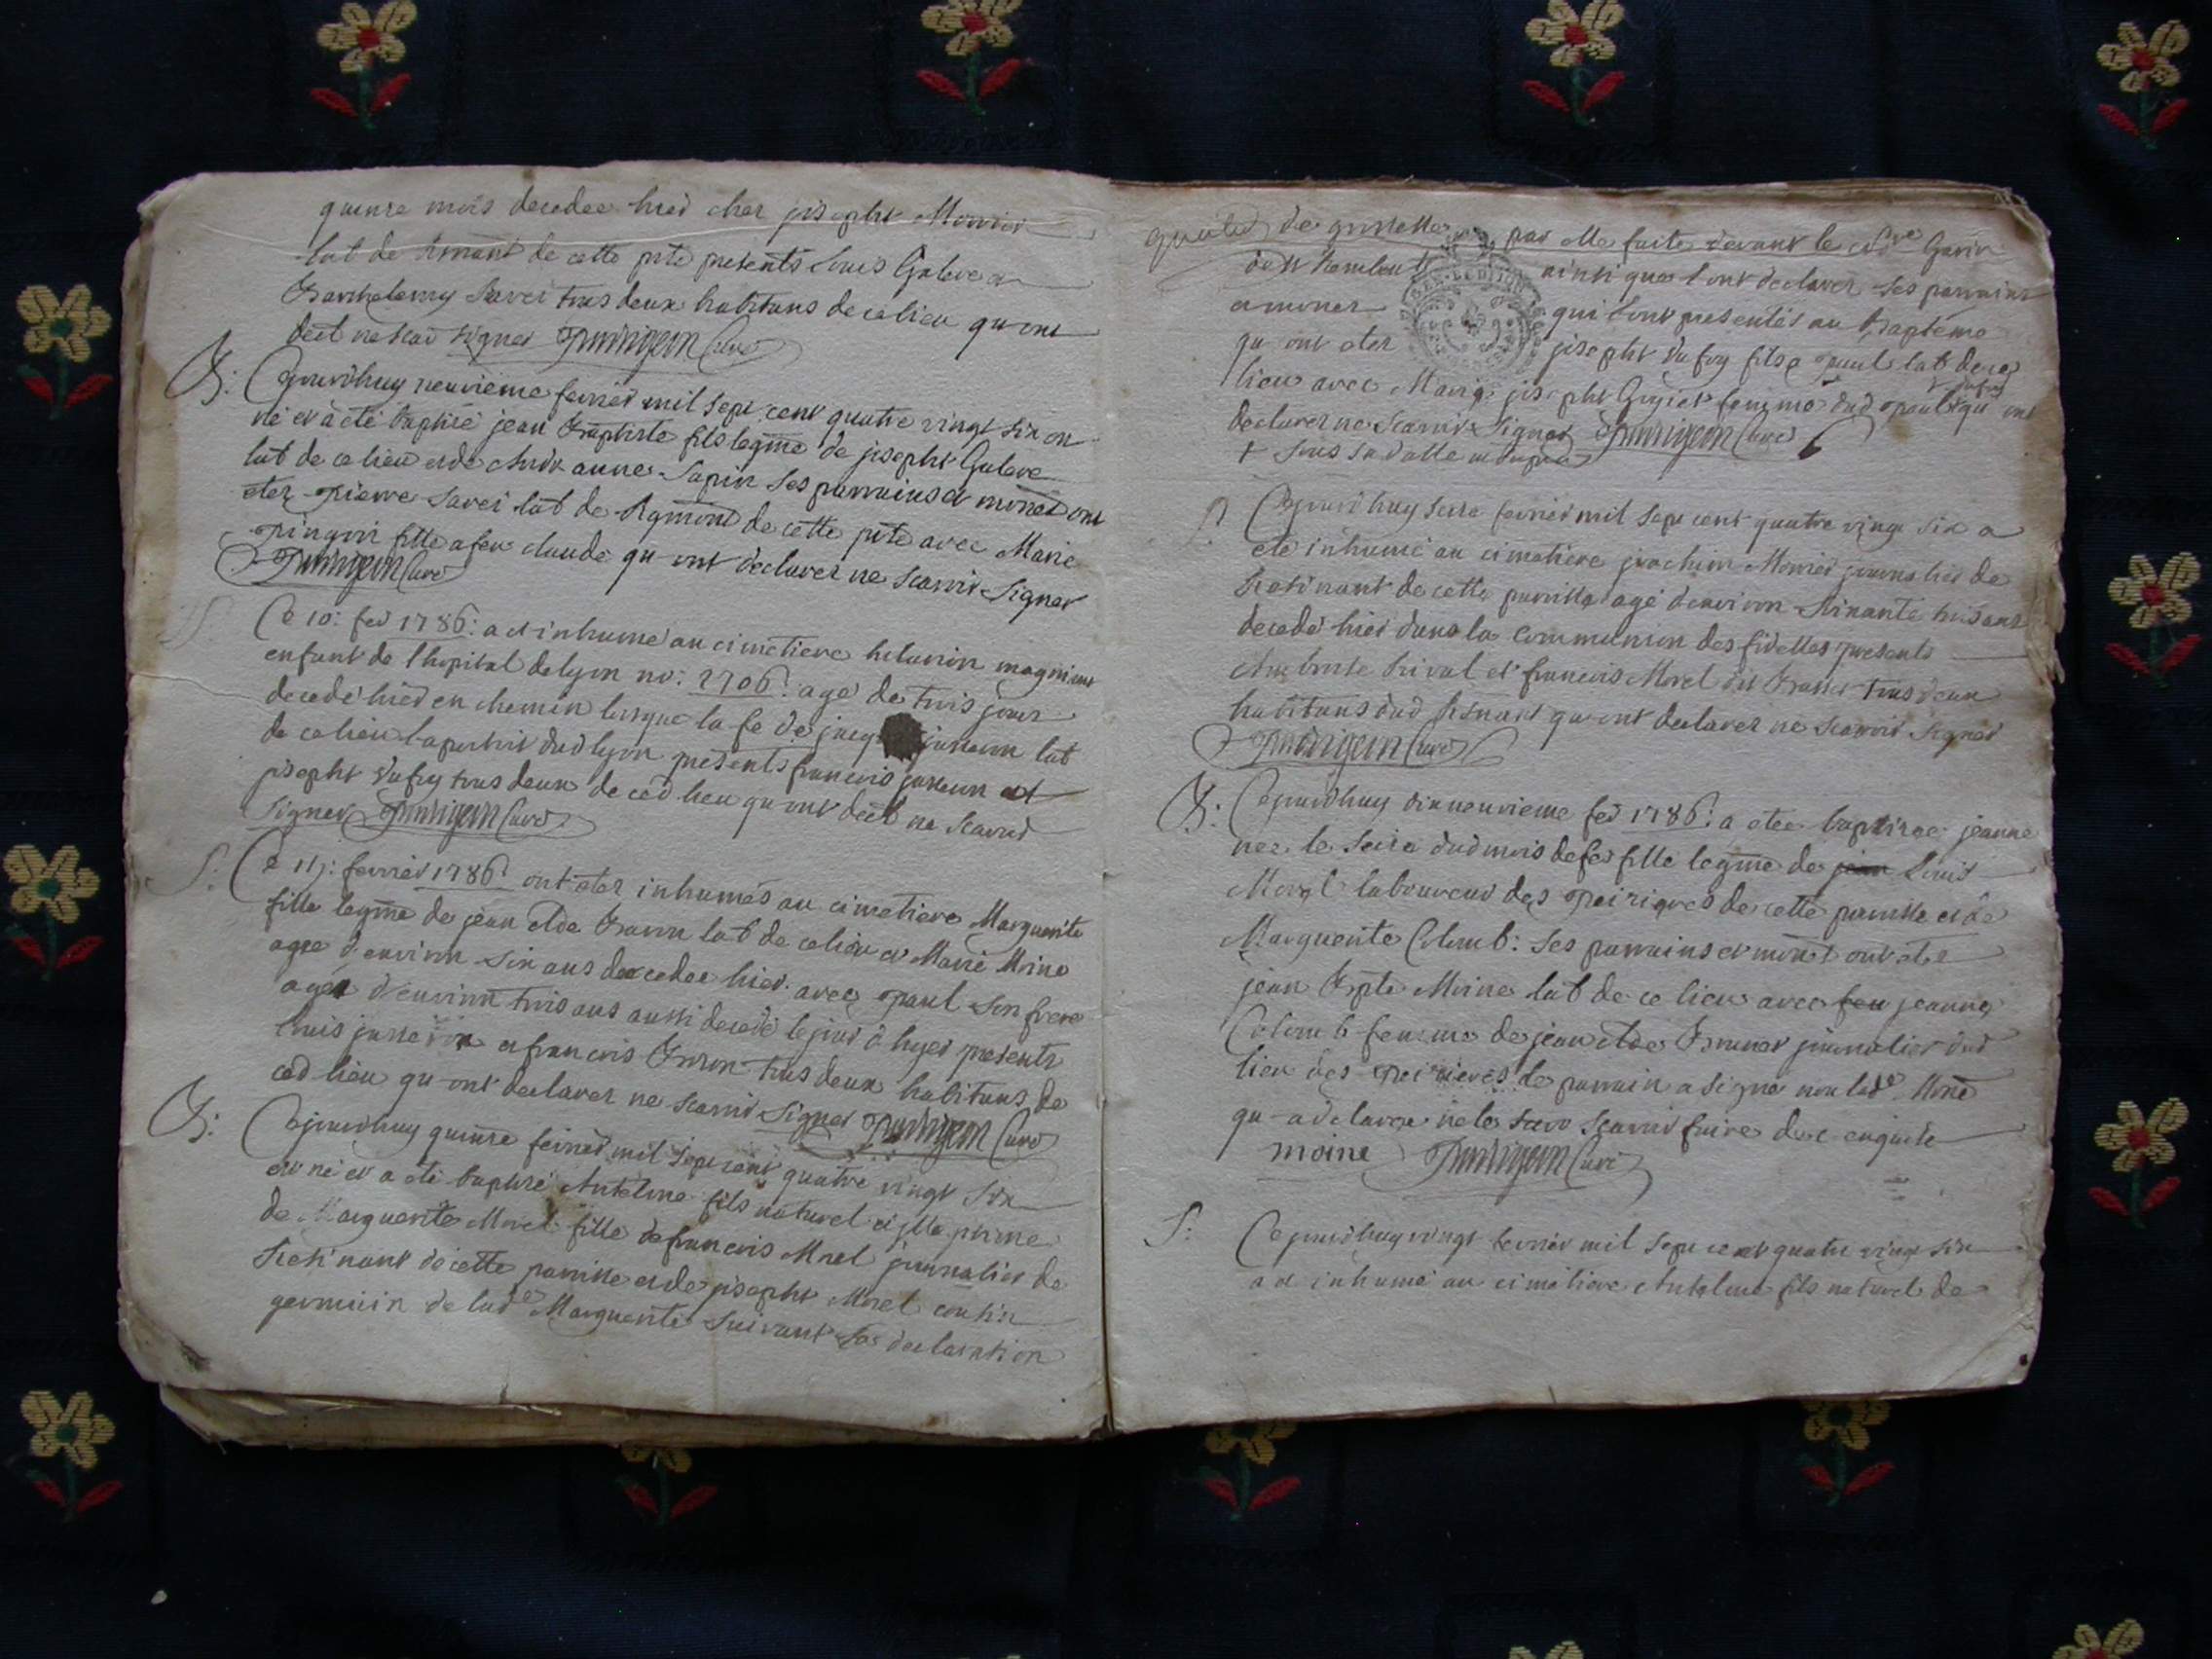 quinze mois decedee hier chez joseph Monier
lab de de cette pśse presents Louis Galave et
Barthelemy Savei tous deux habitans de ce lieu qu ont
declt ne scav signer Curé
B: Cejourdhuy neuvieme fevrier mil sept cent quatre vingt six est
né et a eté baptisé jean Baptiste fils legme de joseph Galave
lab de ce lieu et de anne Sapin ses parrains et marraine ont
eter pierre Savei lab de de cette pśse avec Marie
pingon fille a feu claude qu ont declarer ne scavoir signer
Curé
S. Ce 10: fev 1786: a et inhumé au cimetiere
enfant de lhopital de lyon no: 2706: agé de trois jours
decedé hier en chemin lorsque la fe de jacq juneron lab
de ce lieu laportoit dud lyon presents francois juneron et
joseph dufey tous deux de ced lieu qu ont declt ne scavoir
signer Curé
S: Ce fevrier 1786: ont eter inhumés au cimetiere Marguerite
fille legme de jean et de lab de ce lieu et Marie Moine
agee d'environ six ans decedee hier avec paul son frere
agé d'environ trois ans aussi decedé le jour d hyer presents
Louis et francois tous deux habitans de
ced lieu qu ont declarer ne scavoir signer Curé
B: Cejourdhuy quinze fevrier mil sept cent quatre vingt six
est né et a eté baptisé Antelme fils naturel
de Marguerite Morel fille de francois Morel journalier de
de cette parroisse et de joseph Morel cousin
germain de lade Marguerite suivant sa declaration
de grossesse par elle faite devant le
de st ainsi que l ont declarer ses parrains
et qui l ont presentés au Baptême
qu ont eter joseph dufey fils a paul lab de ce
lieu avec Marie joseph femme dud paul dufey qu ont
declarer ne scavoir signer Curé
S: Cejourdhuy seize fevrier mil sept cent quatre vingt six a
eté inhumé au cimetiere joachim Monier journalier de
de cette parroisse agé d'environ soixante trois ans
decedé hier dans la communion des fidelles presents
Ambroise et francois Morel dit tous deux
habitans dud qu ont declarer ne scavoir signer
Curé
B: Cejourdhuy dixneuvieme fev 1786: a etee baptizee jeanne
nee le seize dud mois de fev fille legme de jean Louis
Morel laboureur des de cette parroisse et de
Marguerite Colomb: ses parrains et ont eté
jean Bpte Moine lab de ce lieu avec feu jeanne
Colomb femme de jean journalier dud
lieu des le parrain a signé non lade
qu a declaree ne le scavoir faire de ce enquise
moine Curé
S: Cejourdhuy vingt fevrier mil sept cent quatre vingt six
a et inhumé au cimetiere Antelme fils naturel de